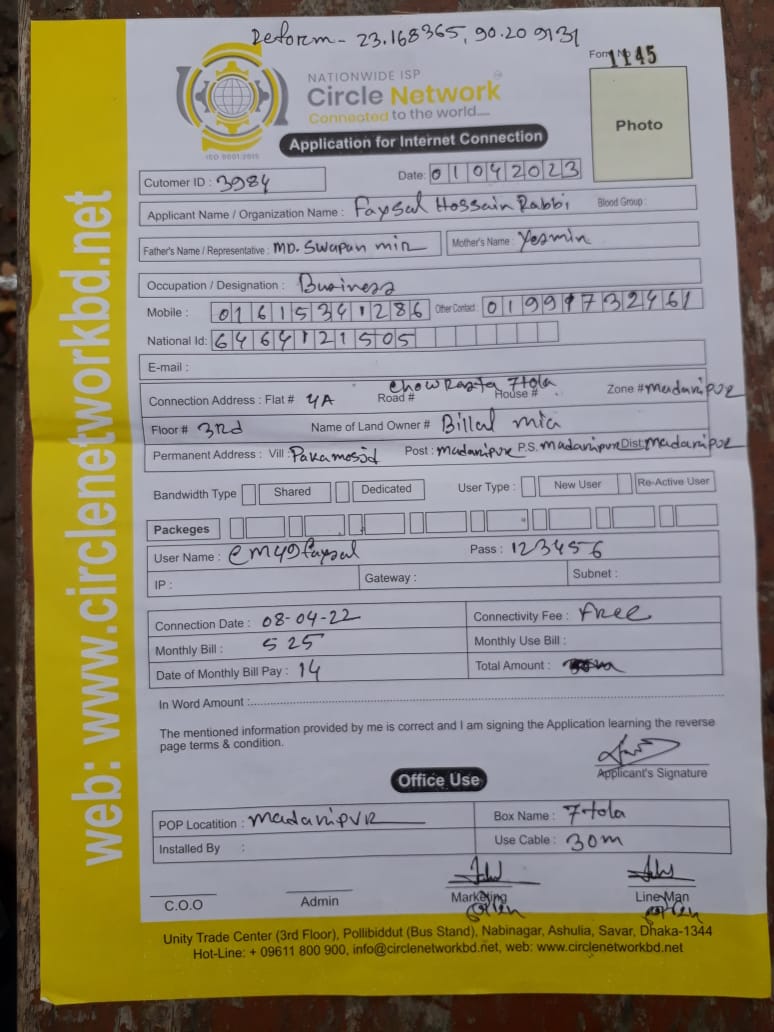 Reform - 23.168365, 90.209131
Form No 1145
NATIONWIDE ISP
Circle Network
Connected to the world....
ISO 9001:2015
Photo
Application for Internet Connection
Cutomer ID : 3984
Date: 01042023
Applicant Name / Organization Name : Faysal Hossain Rabbi Blood Group :
Father's Name / Representative : MD. Swapan mir Mother's Name : Yesmin
Occupation / Designation : Business
Mobile : 01615341286 Other Contact : 01991732461
National Id: 6464121505
E-mail :
Connection Address : Flat # 4A Road # Chow Rasta 7tola House # Zone # madaripur
Floor # 3rd Name of Land Owner # Billal mia
Permanent Address : Vill : Pakamosjid Post : madaripure P.S. madaripure Dist: madaripur
Bandwidth Type Shared Dedicated User Type : New User Re-Active User
Packeges
User Name : cm49faysal Pass : 123456
IP : Gateway : Subnet :
Connection Date : 08-04-22 Connectivity Fee : free
Monthly Bill : 525 Monthly Use Bill :
Date of Monthly Bill Pay : 14 Total Amount :
In Word Amount :
The mentioned information provided by me is correct and I am signing the Application learning the reverse
page terms & condition.
Applicant's Signature
Office Use
POP Locatition : madaripur Box Name : 7tola
Installed By : Use Cable : 30m
C.O.O Admin Marketing Line Man
Unity Trade Center (3rd Floor), Pollibiddut (Bus Stand), Nabinagar, Ashulia, Savar, Dhaka-1344
Hot-Line: + 09611 800 900, info@circlenetworkbd.net, web: www.circlenetworkbd.net
web: www.circlenetworkbd.net